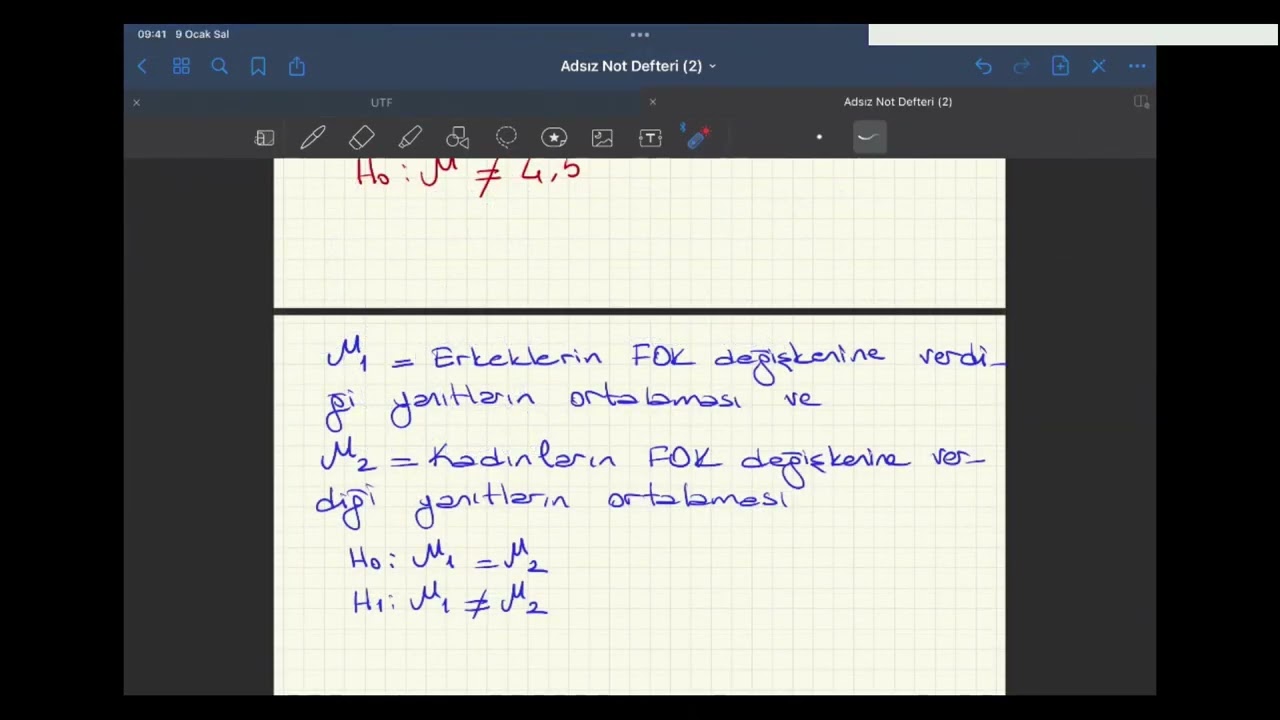 09:41 9 Ocak Sal
Adsız Not Defteri (2)
UTF
Adsız Not Defteri (2)
H0 : μ ≠ 4,5
μ1 = Erkeklerin FOK değişkenine verdi-
ği yanıtların ortalaması ve
μ2 = Kadınların FOK değişkenine ver-
diği yanıtların ortalaması
H0 : μ1 = μ2
H1 : μ1 ≠ μ2